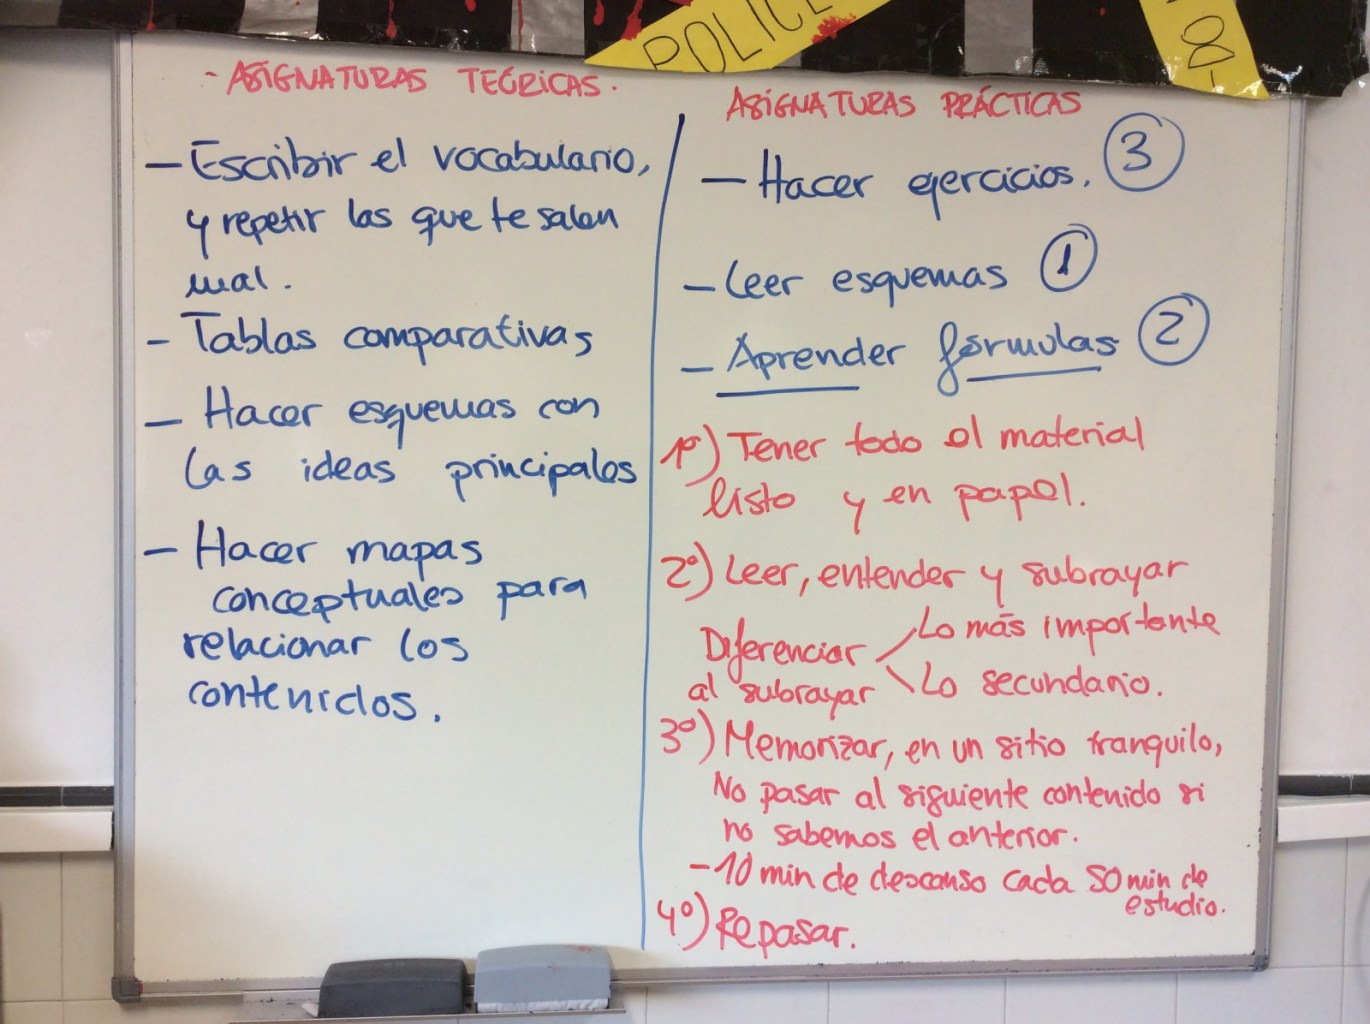 POLICE
- ASIGNATURAS TEÓRICAS.
- Escribir el vocabulario,
y repetir las que te salen
mal.
- Tablas comparativas
- Hacer esquemas con
las ideas principales
- Hacer mapas
conceptuales para
relacionar los
contenidos.
ASIGNATURAS PRÁCTICAS
- Hacer ejercicios. 3
- Leer esquemas 1
- Aprender fórmulas 2
1º) Tener todo el material
listo y en papel.
2º) Leer, entender y subrayar
Diferenciar
al subrayar
Lo más importante
Lo secundario.
3º) Memorizar, en un sitio tranquilo,
No pasar al siguiente contenido si
no sabemos el anterior.
- 10 min de descanso cada 50 min de
estudio.
4º) Repasar.